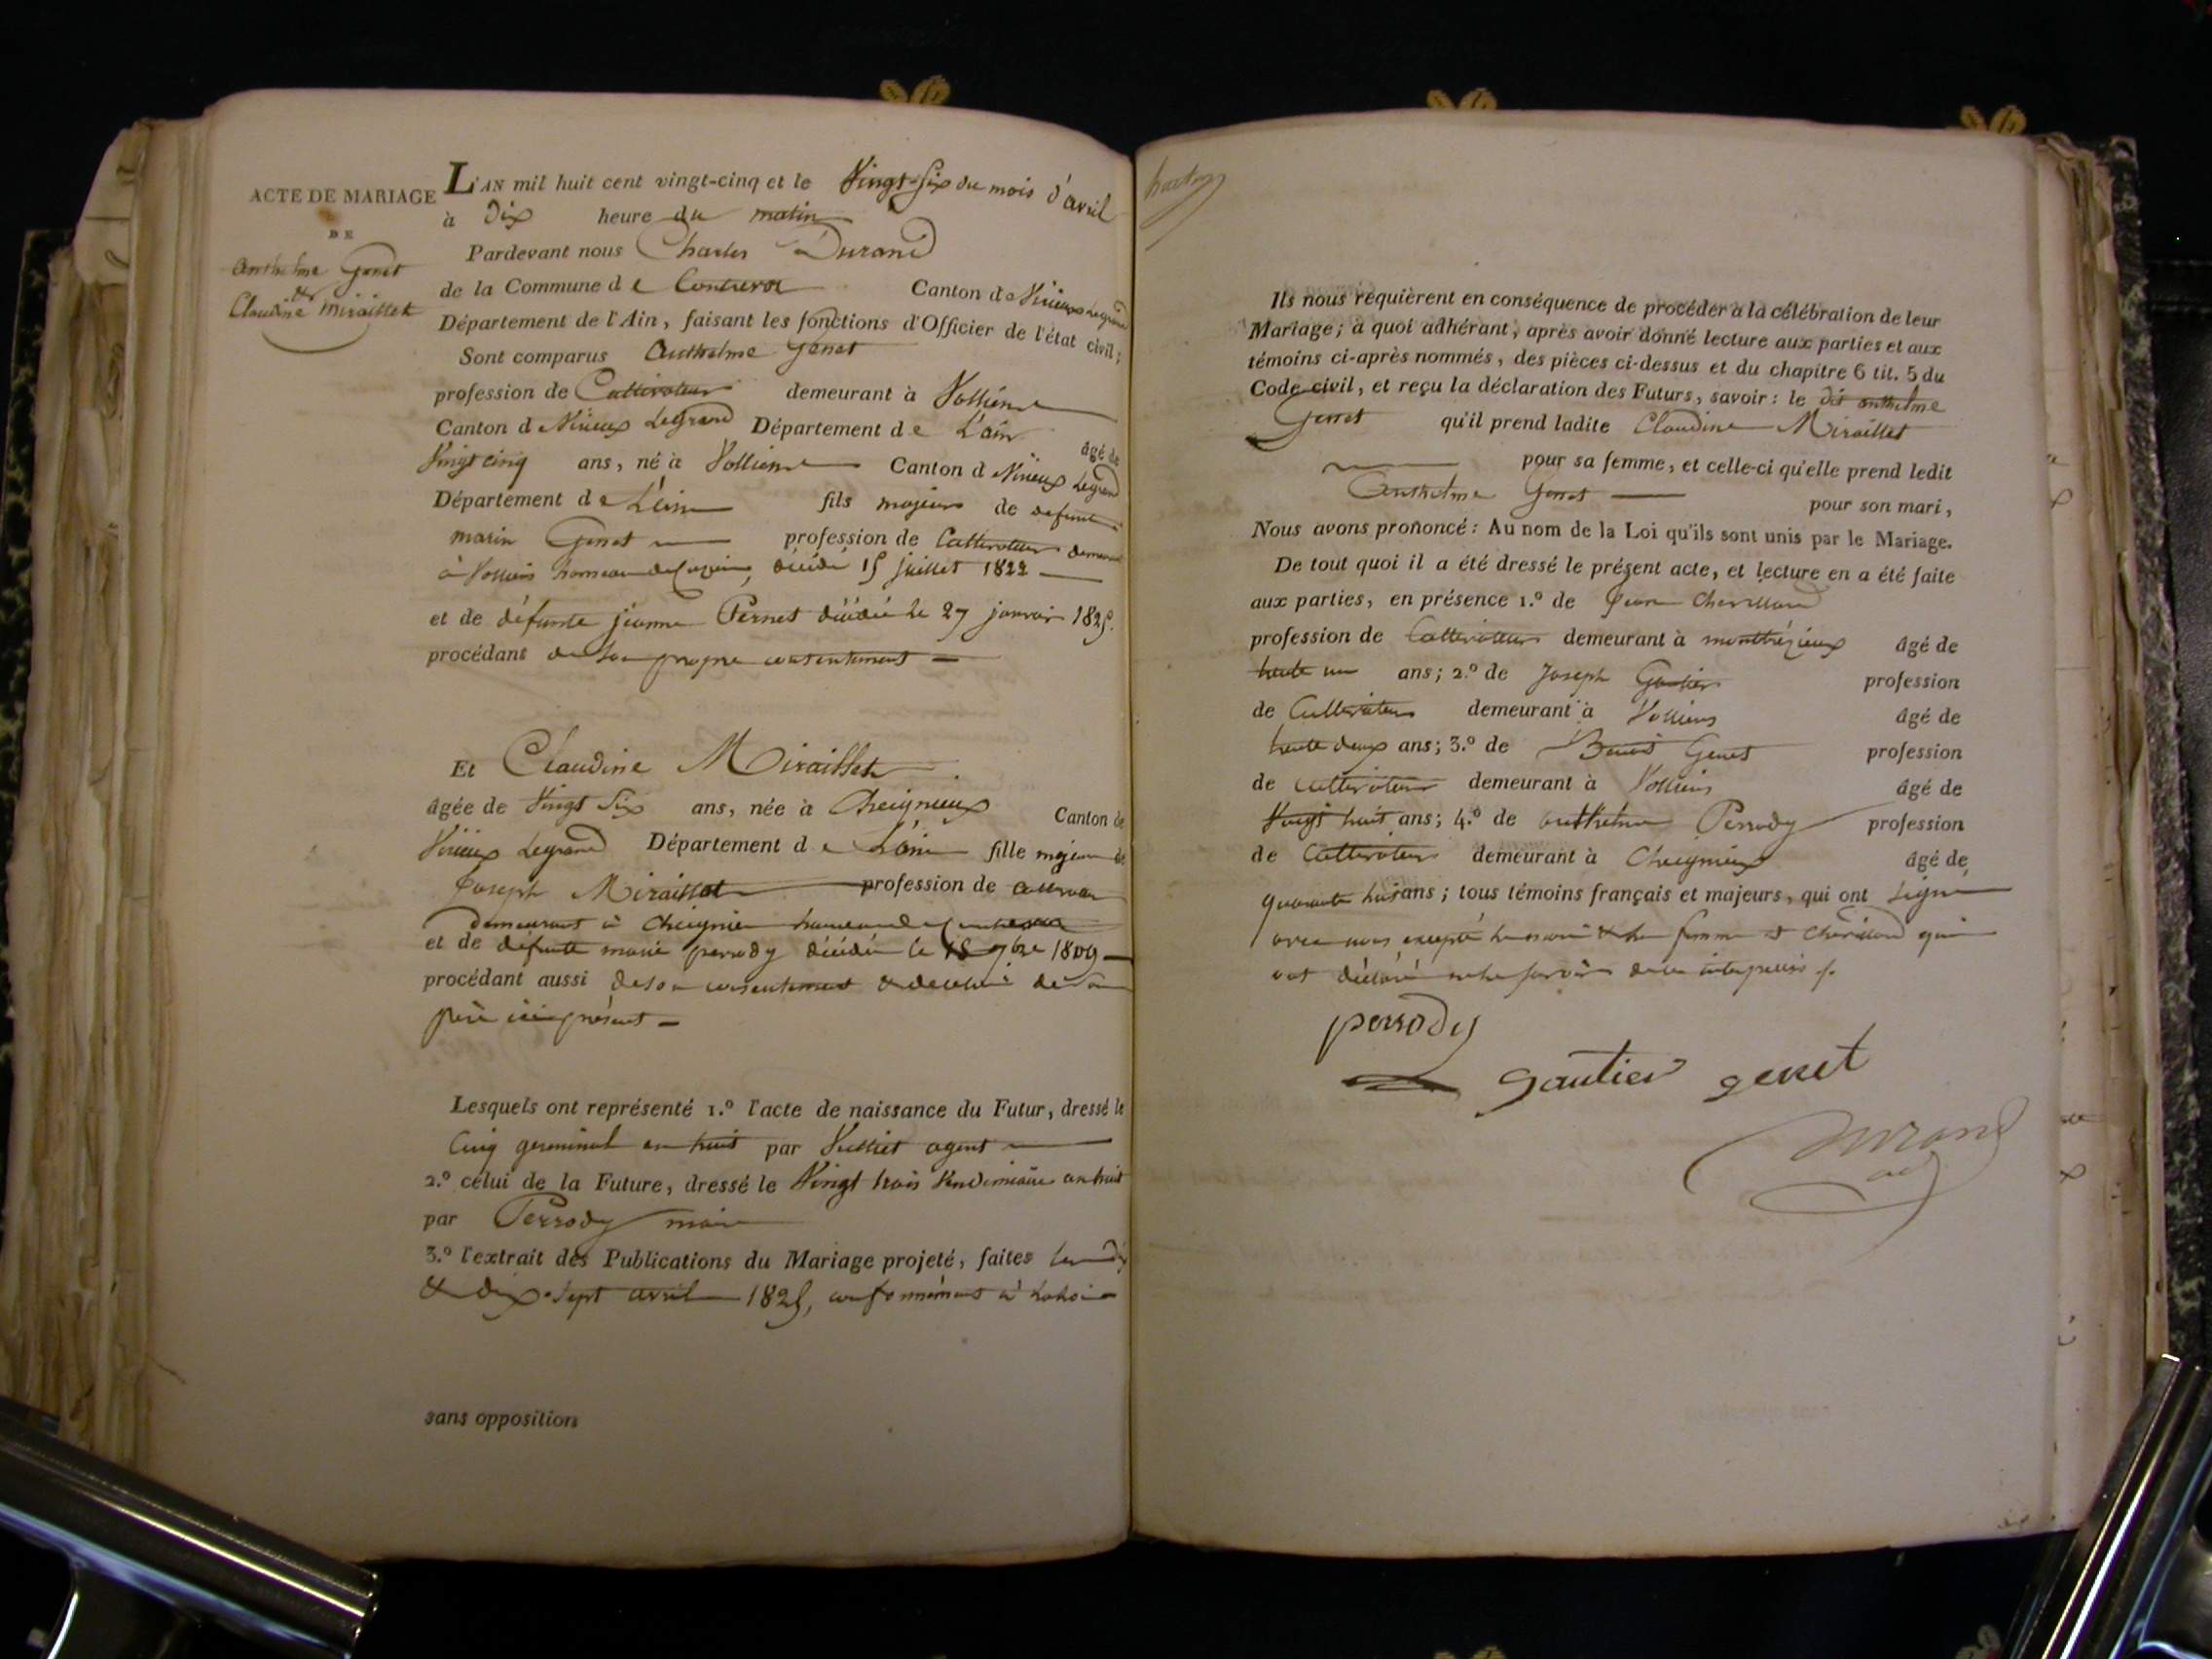 ACTE DE MARIAGE
DE
Anthelme Genet
&
Claudine Miraillet
L'AN mil huit cent vingt-cinq et le Vingt-Six du mois d'avril
à Dix heure du matin
Pardevant nous Charles Durand
de la Commune de Contrevoz Canton de Virieux Legrand
Département de l'Ain, faisant les fonctions d'Officier de l'état civil;
Sont comparus Anthelme Genet
profession de Cultivateur demeurant à Vollien
Canton d Virieux Legrand Département de L'ain âgé de
Vingt cinq ans, né à Vollien Canton d Virieux Legrand
Département de L'ain fils majeur de defunt
marin Genet profession de Cultivateur demeurant
à Volliens hameau de , décédé 15 juillet 1822
et de défunte jeanne Pernet décédée le 27 janvier 1825.
procédant de son propre consentement
Et Claudine Miraillet
âgée de Vingt Six ans, née à Cheignieux Canton de
Virieux Legrand Département de L'ain fille majeure de
Joseph Miraillet profession de cultivateur
demeurant à Cheignieu hameau de Contrevoz
et de défunte marie perrody décédée le 15 9bre 1809
procédant aussi de son consentement & de celui de son
père ici présent
Lesquels ont représenté 1.º l'acte de naissance du Futur, dressé le
Cinq germinal an huit par Vulliet agent
2.º celui de la Future, dressé le Vingt trois Vendémiaire an huit
par Perrody maire
3.º l'extrait des Publications du Mariage projeté, faites les dix
& dix-Sept avril 1825, conformément à la loi
sans opposition
Ils nous requièrent en conséquence de procéder à la célébration de leur
Mariage; à quoi adhérant, après avoir donné lecture aux parties et aux
témoins ci-après nommés, des pièces ci-dessus et du chapitre 6 tit. 5 du
Code civil, et reçu la déclaration des Futurs, savoir: le dit anthelme
Genet qu'il prend ladite Claudine Miraillet
pour sa femme, et celle-ci qu'elle prend ledit
Anthelme Genet pour son mari,
Nous avons prononcé: Au nom de la Loi qu'ils sont unis par le Mariage.
De tout quoi il a été dressé le présent acte, et lecture en a été faite
aux parties, en présence 1.º de Jean Chevillard
profession de Cultivateur demeurant à montbrézieux âgé de
trente un ans; 2.º de Joseph Gautier profession
de Cultivateur demeurant à Volliens âgé de
trente deux ans; 3.º de Benoit Genet profession
de cultivateur demeurant à Volliens âgé de
Vingt huit ans; 4.º de anthelme Perrody profession
de Cultivateur demeurant à Cheignieux âgé de
quarante huit ans; tous témoins français et majeurs, qui ont signé
avec nous excepté le mari & la femme et Chevillard qui
ont déclaré ne le savoir de ce interpellés
perrody
gautier genet
Durand